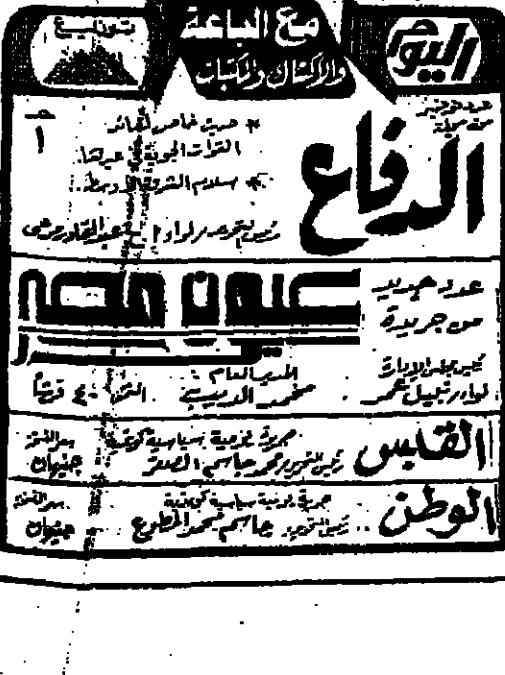 اليوم
مع الباعة
والأكشاك والمكتبات
توزيع
عدد نوفمبر
من مجلة
الدفاع
١ جـ
* حديث خاص لقائد
القوات الجوية في عيدها.
* سلام الشرق الأوسط..
رئيس التحرير لواء أ.
عدد جديد
من جريدة
عيون مصر
رئيس مجلس الإدارة
لواء نبيل عمر
المدير العام:
محمد الديب
الثمن ٤٠ قرشاً
القبس
جريدة يومية سياسية كويتية
رئيس التحرير محمد جاسم الصقر
سعر النسخة
جنيهان
الوطن
جريدة يومية سياسية كويتية
رئيس التحرير جاسم محمد المطوع
سعر النسخة
جنيهان